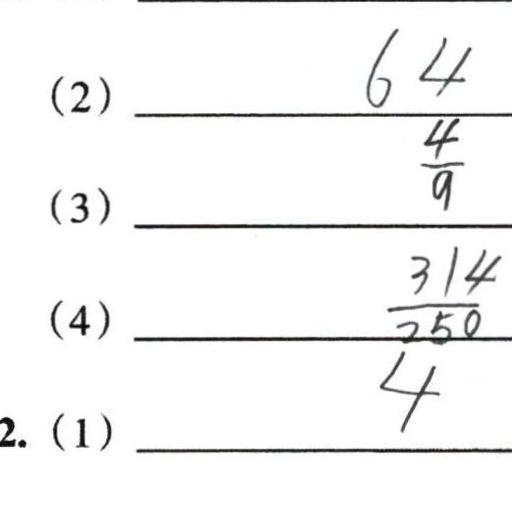 (2) 64
(3) 4/9
(4) 314/250
2. (1) 4